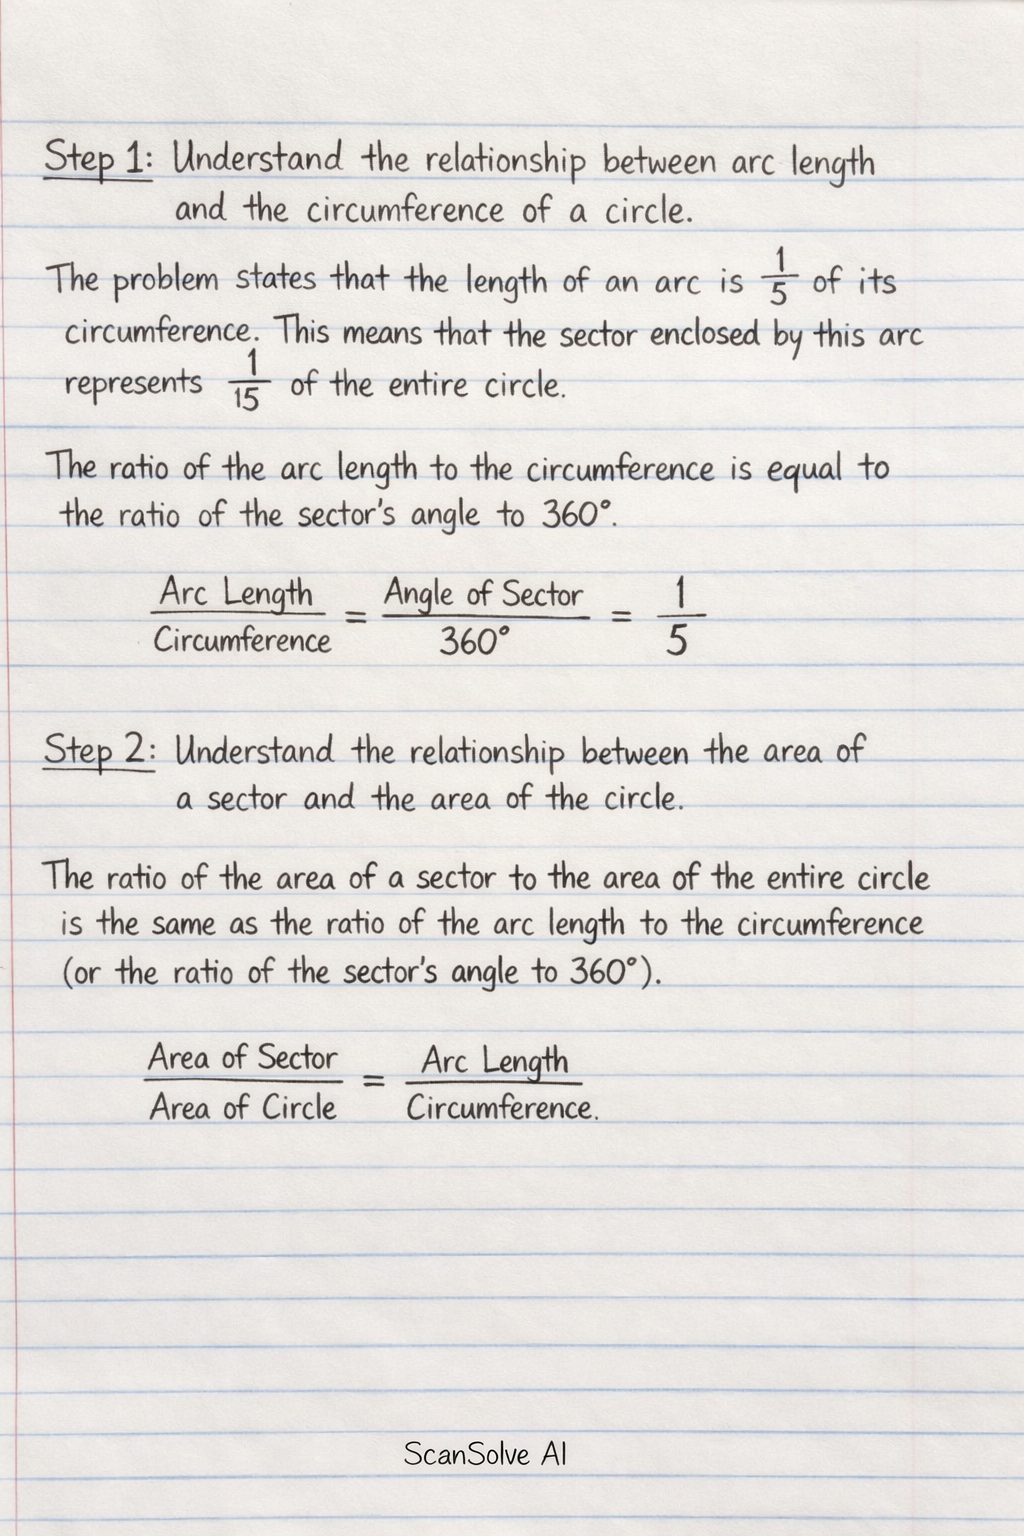 Step 1: Understand the relationship between arc length
and the circumference of a circle.
The problem states that the length of an arc is 1/5 of its
circumference. This means that the sector enclosed by this arc
represents 1/15 of the entire circle.
The ratio of the arc length to the circumference is equal to
the ratio of the sector's angle to 360°.
Arc Length / Circumference = Angle of Sector / 360° = 1/5
Step 2: Understand the relationship between the area of
a sector and the area of the circle.
The ratio of the area of a sector to the area of the entire circle
is the same as the ratio of the arc length to the circumference
(or the ratio of the sector's angle to 360°).
Area of Sector / Area of Circle = Arc Length / Circumference.
ScanSolve AI